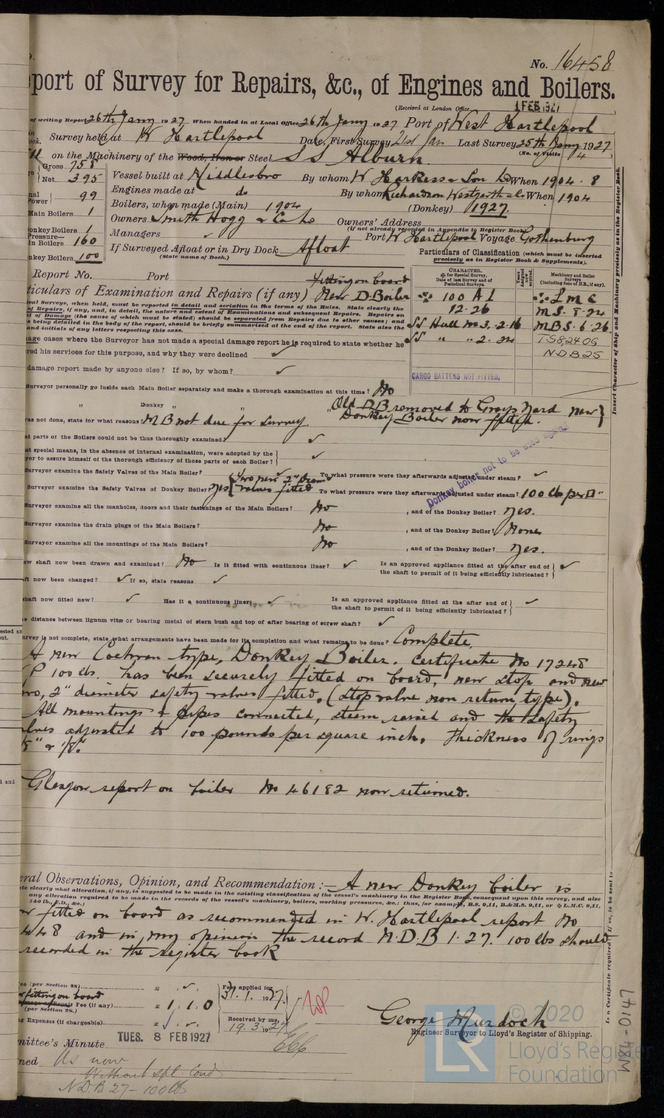 No. 16458
port of Survey for Repairs, &c., of Engines and Boilers.
(Received at London Office 1 FEB 1927
of writing Report 26th Jany 1927 When handed in at Local Office 26th Jany 1927 Port of West Hartlepool
Survey held at W Hartlepool Date, First Survey 21st Jan Last Survey 25th Jany 1927
(No. of Visits 4)
on the Machinery of the Wood, Iron or Steel S S Alburn
Gross 758
Net 395
Vessel built at Middlesbro By whom W Harkess & Son Ld When 1904 . 8
Engines made at do By whom Richardson Westgarth & Co When 1904
99
Boilers, when made (Main) 1904 (Donkey) 1927.
Main Boilers 1
Owners Smith Hogg & Co Ld Owners' Address
(if not already recorded in Appendix to Register Book)
Donkey Boilers 1
Managers Port W Hartlepool Voyage Gothenburg
in Boilers 160
onkey Boilers 100
If Surveyed Afloat or in Dry Dock Afloat
(State name of Dock.)
Particulars of Classification (which must be inserted
precisely as in Register Book & Supplements).
Report No. Port
Fitting on board
New D. Boiler
ticulars of Examination and Repairs (if any)
100 A 1
12.26
SS Hull No 3. 2.16
SS " " 2. 24
L M C
M S. 8.24
M B S. 6.26
T S 8,24 O G
N D B 25
CARGO BATTENS NOT FITTED.
age cases where the Surveyor has not made a special damage report he is required to state whether he
red his services for this purpose, and why they were declined ✓
damage report made by anyone else? If so, by whom? ✓
Surveyor personally go inside each Main Boiler separately and make a thorough examination at this time? No
" Donkey "
Old D B removed to Grays Yard new
Donkey Boiler now fitted.
as not done, state for what reasons M B not due for survey.
at parts of the Boilers could not be thoroughly examined? ✓
at special means, in the absence of internal examination, were adopted by the
yor to assure himself of the thorough efficiency of those parts of each Boiler? ✓
Donkey boiler not to be used again
Surveyor examine the Safety Valves of the Main Boiler? To what pressure were they afterwards adjusted under steam? ✓
Surveyor examine the Safety Valves of Donkey Boiler? yes Two new 2" diam valves fitted To what pressure were they afterwards adjusted under steam? 100 lb per □"
Surveyor examine all the manholes, doors and their fastenings of the Main Boilers? No , and of the Donkey Boiler? Yes.
Surveyor examine the drain plugs of the Main Boilers? No , and of the Donkey Boiler? None
Surveyor examine all the mountings of the Main Boilers? No , and of the Donkey Boiler? Yes.
ew shaft now been drawn and examined? No Is it fitted with continuous liner? ✓ Is an approved appliance fitted at the after end of
the shaft to permit of it being efficiently lubricated? ✓
ft now been changed? ✓ If so, state reasons ✓
shaft now fitted new? ✓ Has it a continuous liner? ✓ Is an approved appliance fitted at the after end of
the shaft to permit of it being efficiently lubricated? ✓
e distance between lignum vitæ or bearing metal of stern bush and top of after bearing of screw shaft? ✓
urvey is not complete, state what arrangements have been made for its completion and what remains to be done? Complete,
A new Cochran type, Donkey Boiler, certificate No 17248
P 100 lbs. has been securely fitted on board, new stop and new
wo, 2" diameter safety valves fitted, (stop valve non return type).
All mountings & pipes connected, steam raised and the safety
lves adjusted to 100 pounds per square inch. Thickness of rings
Glasgow report on boiler No 46182 now returned.
eral Observations, Opinion, and Recommendation :— A new Donkey boiler is
fitted on board as recommended in W. Hartlepool report No
448 and in my opinion the record N.D.B 1.27. 100 lbs should
recorded in the register book
fitting on board
Fee (if any) 1. 1. 0
ng Expenses (if chargeable)
Fees applied for
31.1.1927
Received by me,
19.3.27
George Murdoch
Engineer Surveyor to Lloyd's Register of Shipping.
mittee's Minute TUES. 8 FEB 1927
ned As now
Without Spl. Cond
N D B 27 – 100 lbs
Insert Character of Ship and Machinery precisely as in the Register Book.
W84-0147
© 2020
LR
Lloyd's Register
Foundation